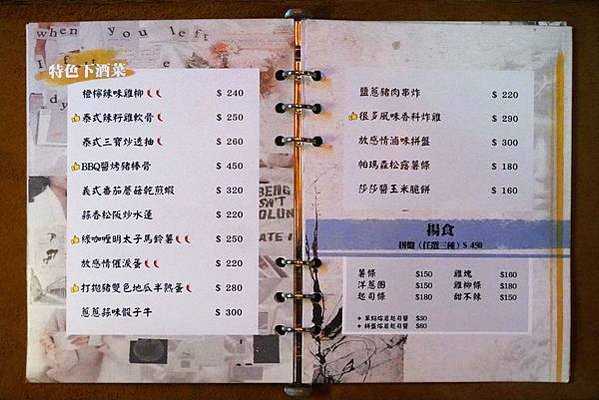 when you left
特色下酒菜
檸檬辣味雞柳 $ 240
泰式辣籽雞軟骨 $ 250
泰式三寶炒透抽 $ 260
BBQ醬烤豬棒骨 $ 450
義式番茄蘑菇乾煎蝦 $ 320
蒜香松阪炒水蓮 $ 220
綠咖哩明太子馬鈴薯 $ 250
放感情催淚蛋 $ 220
打拋豬雙色地瓜半熟蛋 $ 280
蔥蔥蒜味骰子牛 $ 300
鹽蔥豬肉串炸 $ 220
很多風味香料炸雞 $ 290
放感情滷味拼盤 $ 300
帕瑪森松露薯條 $ 180
莎莎醬玉米脆餅 $ 160
揚食
拼盤 (任選三種) $ 450
薯條 $150 雞塊 $160
洋蔥圈 $150 雞柳條 $180
起司條 $180 甜不辣 $150
+ 單點熔岩起司醬 $30
+ 拼盤熔岩起司醬 $60